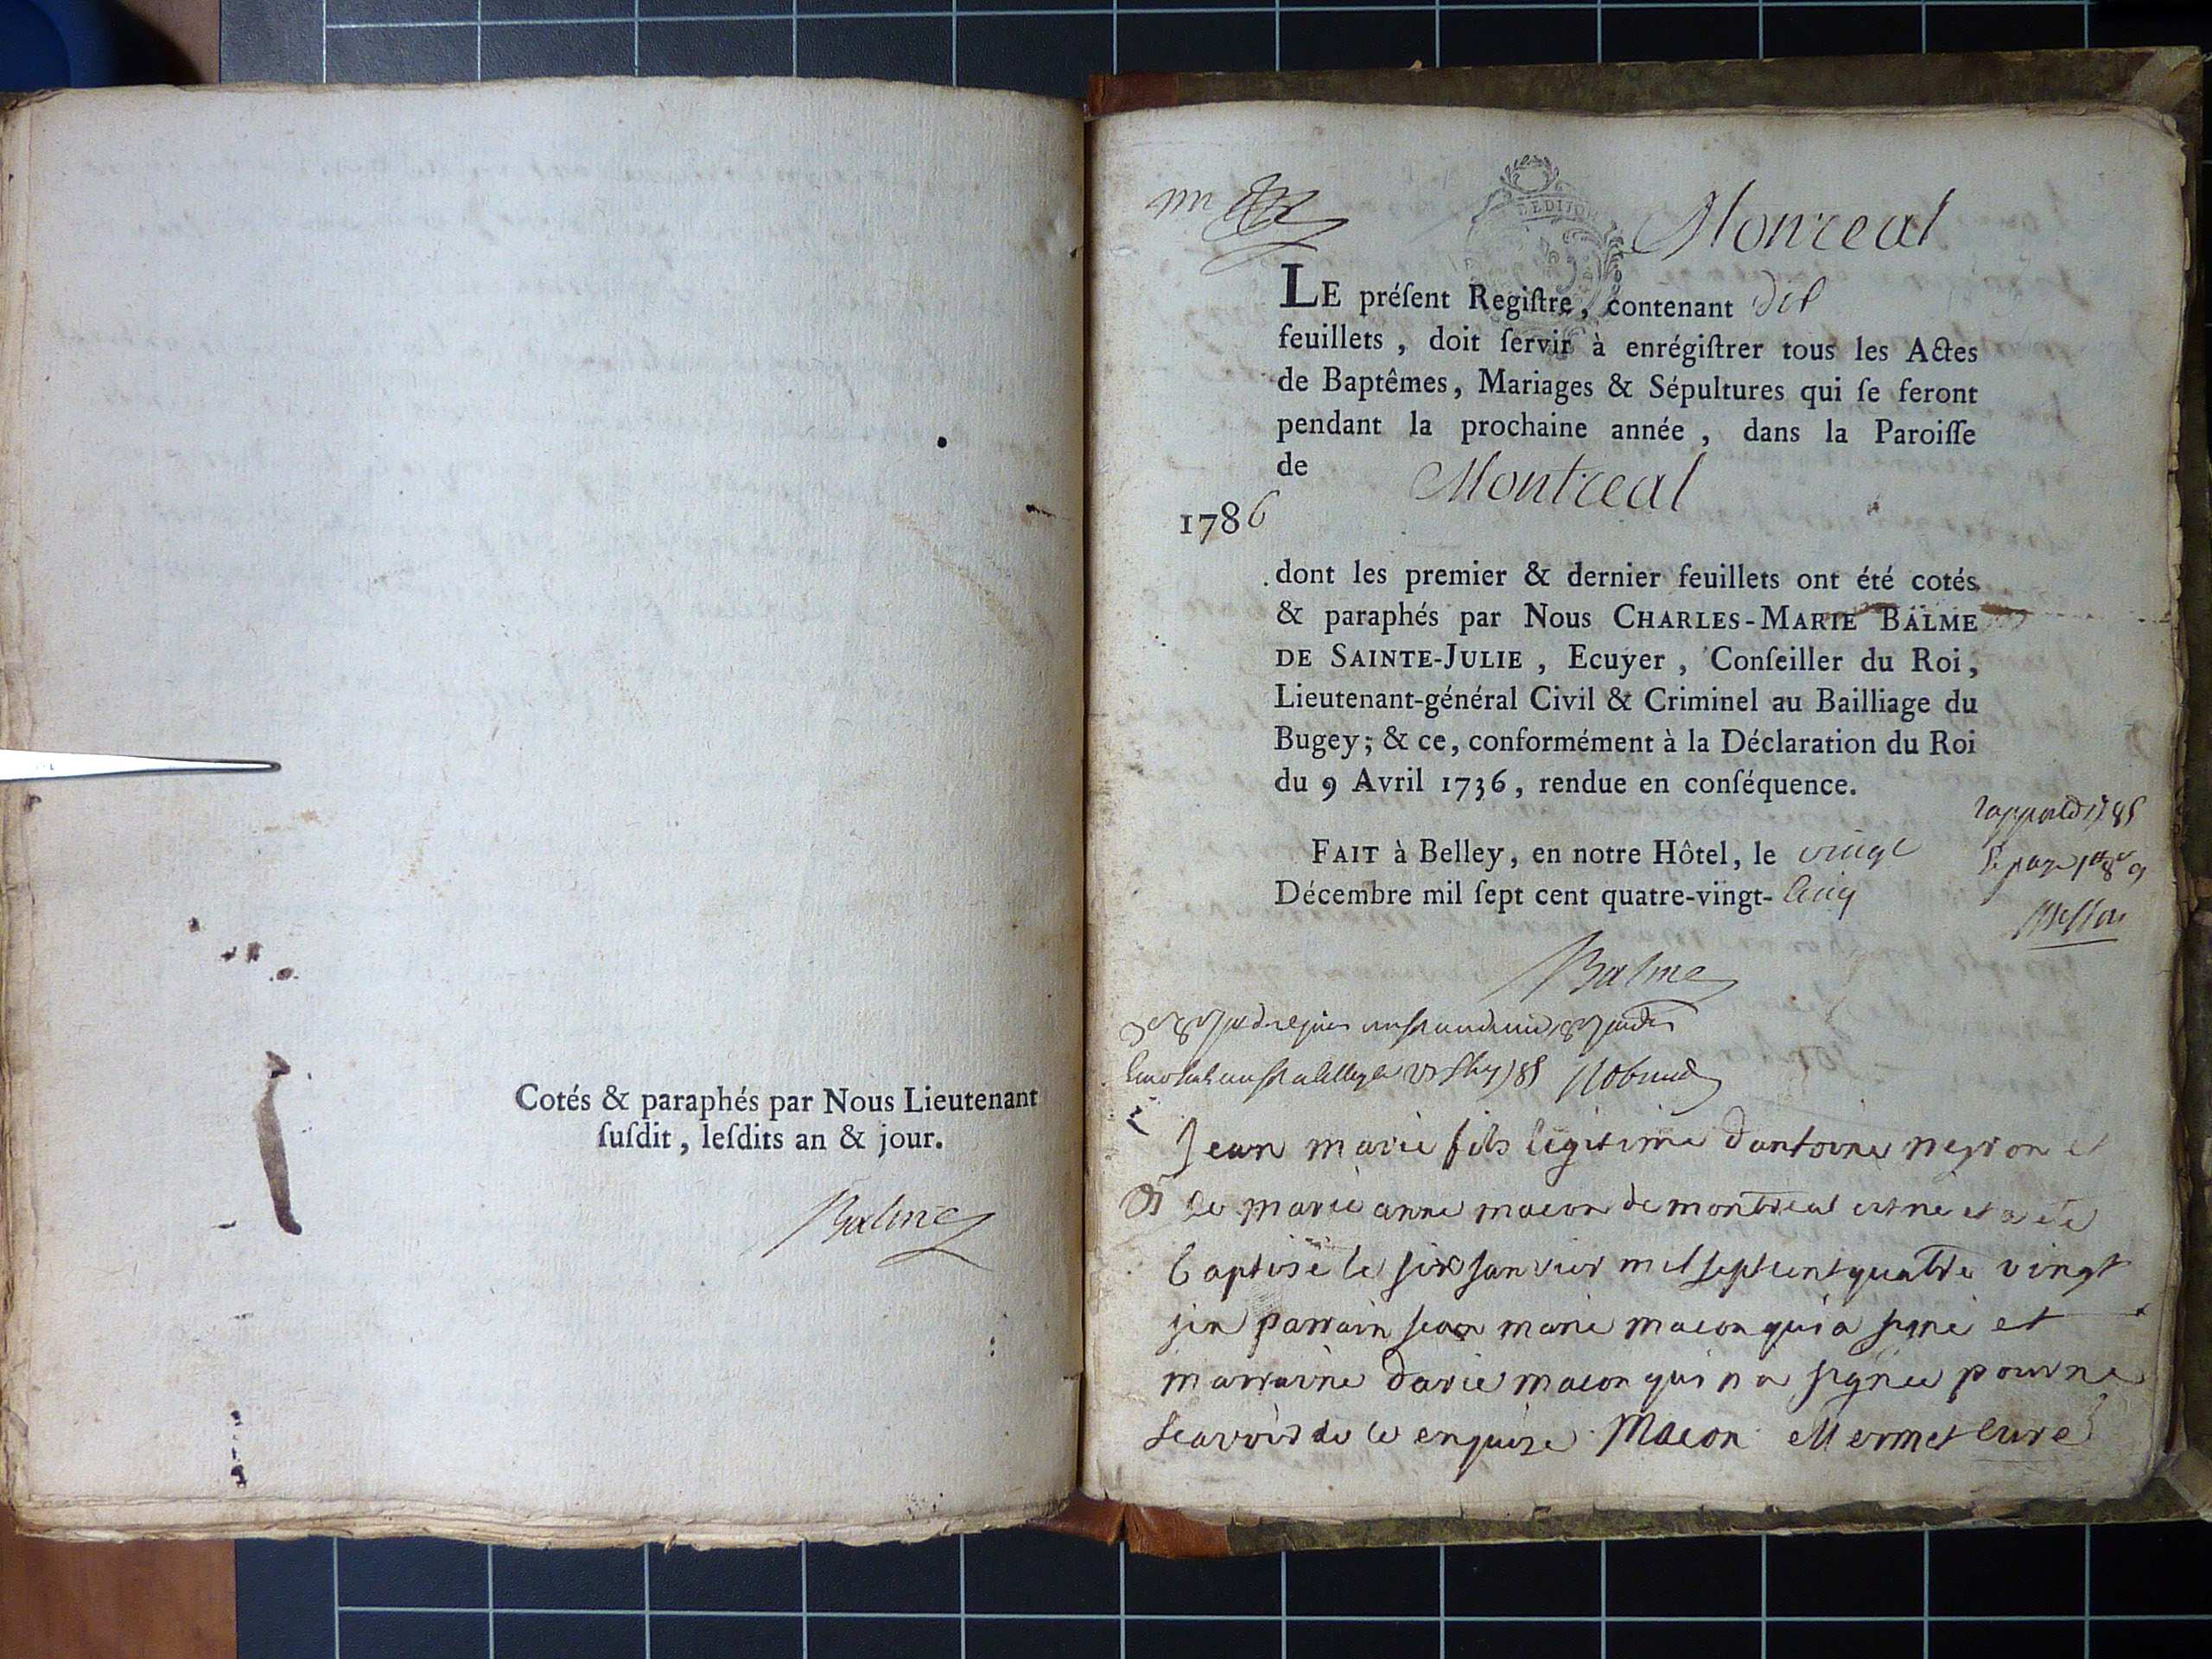 Cotés & paraphés par Nous Lieutenant
ſuſdit, leſdits an & jour.
Balme
Montreal
LE préſent Regiſtre, contenant dix
feuillets, doit ſervir à enrégiſtrer tous les Actes
de Baptêmes, Mariages & Sépultures qui ſe feront
pendant la prochaine année, dans la Paroiſſe
de Montreal
1786
dont les premier & dernier feuillets ont été cotés
& paraphés par Nous CHARLES-MARIE BALME
DE SAINTE-JULIE, Ecuyer, Conſeiller du Roi,
Lieutenant-général Civil & Criminel au Bailliage du
Bugey; & ce, conformément à la Déclaration du Roi
du 9 Avril 1736, rendue en conſéquence.
FAIT à Belley, en notre Hôtel, le vingt
Décembre mil ſept cent quatre-vingt-cinq
Balme
Jean marie fils legitime dantoine neyron et
de marie anne macon de montreal est né et a été
baptisé le six janvier mil sept cent quatre vingt
six parrain jean marie macon qui a signé et
marraine marie macon qui n a signée pour ne
scavoir de ce enquise Macon Mermet curé